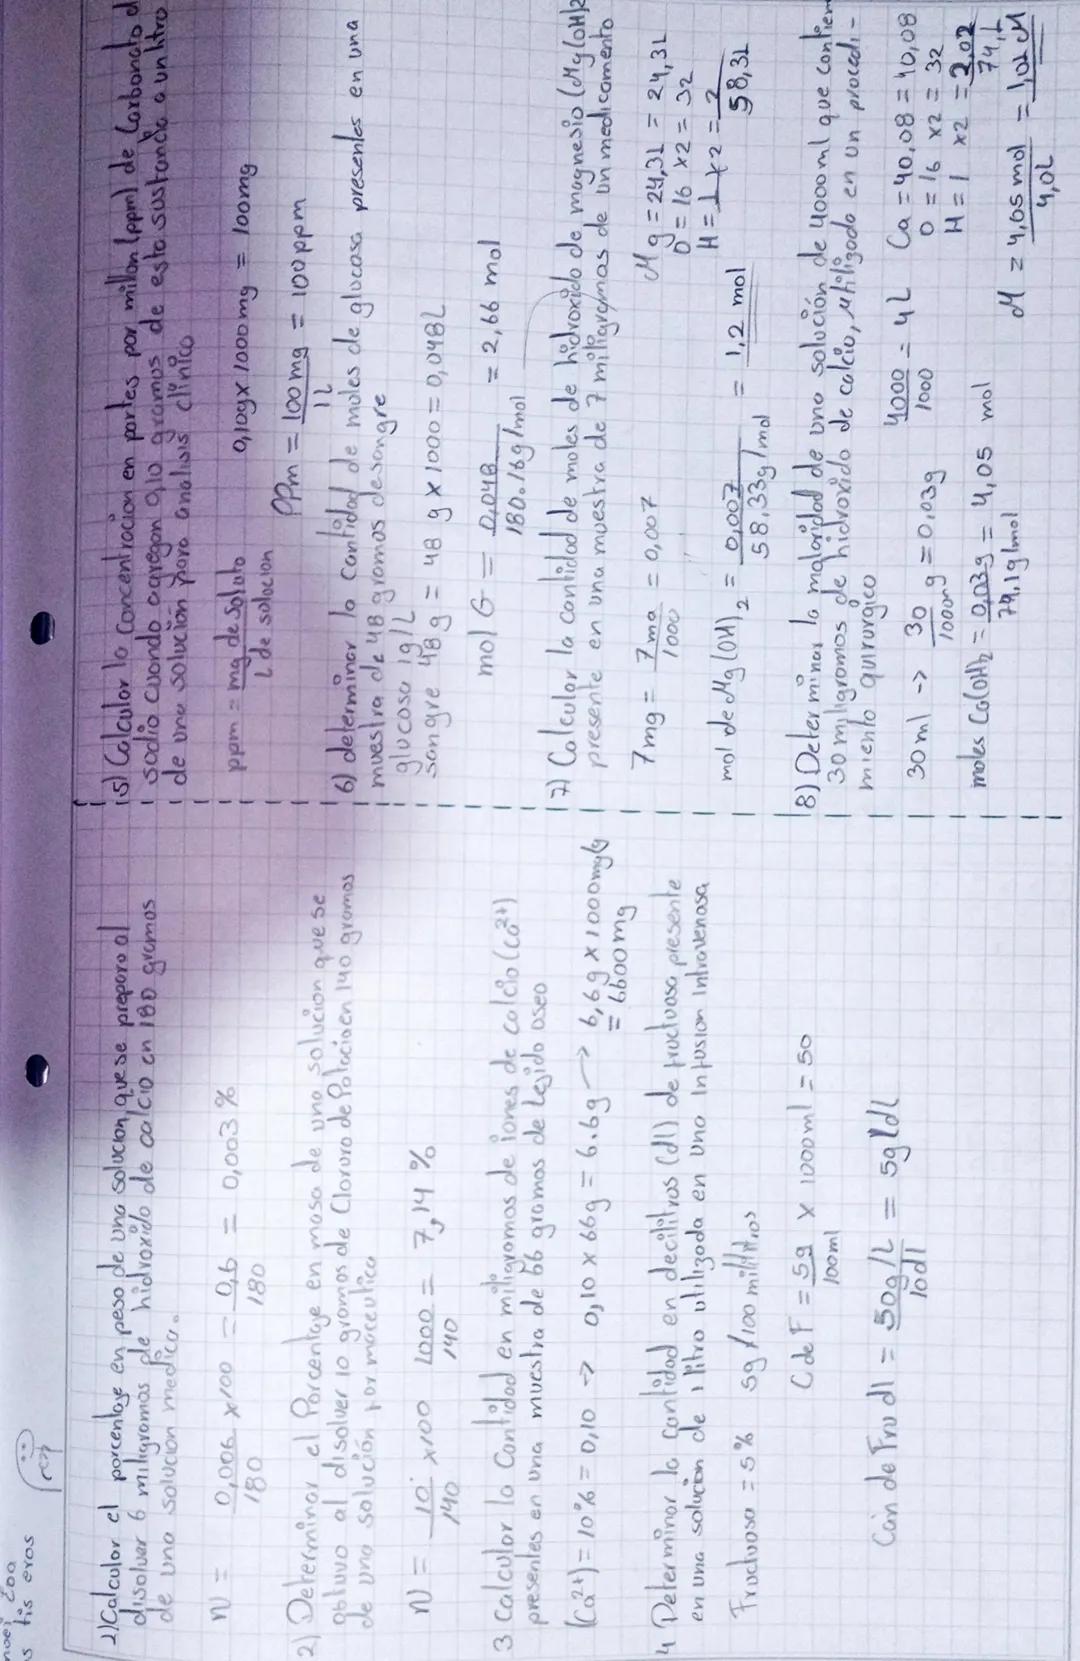 s tis eros
rcp
1) Calcular el porcentaje en peso de una solucion, que se preparo al
disolver 6 miligramos de hidroxido de calcio en 180 gramos
de una solucion medica.
N = 0,006 / 180 x 100 = 0,6 / 180 = 0,003 %
2) Determinar el Porcentaje en masa de una solucion que se
obtuvo al disolver 10 gramos de Cloruro de Potacio en 140 gramos
de una solución farmaceutica
N = 10 / 140 x 100 1000 / 140 = 7,14 %
3 Calcular la Cantidad en miligramos de iones de calcio (Ca²⁺)
presentes en una muestra de 66 gramos de tejido oseo
(Ca²⁺) = 10% = 0,10 -> 0,10 x 66g = 6.6g -> 6,6g x 1000mg/g
= 6600mg
4 Determinar la cantidad en decilitros (dl) de fructuosa presente
en una solucion de 1 litro utilizada en una Infusion Intravenosa
Fructuosa = 5% 5g/100 mililitros
C de F = 5g / 100ml x 1000ml = 50
Can de Fru dl = 50g/L / 10dl = 5g/dl
5) Calcular la Concentracion en partes por millon (ppm) de Carbonato d
sodio cuando agregan 0,10 gramos de esta sustancia a un litro
de una solución para analisis clinico
ppm = mg de soluto / L de solucion 0,10g x 1000mg = 100mg
PPm = 100mg / 1L = 100ppm
6) determinar la Cantidad de moles de glucosa presentes en una
muestra de 48 gramos de sangre
glucosa 1g/L
sangre 48g = 48 g x 1000 = 0,048L
mol G = 0,048 / 180.16g/mol = 2,66 mol
7) Calcular la cantidad de moles de hidroxido de magnesio (Mg(OH)2
presente en una muestra de 7 miligramos de un medicamento
7mg = 7mg / 1000 = 0,007 Mg = 24,31 = 24,31
O = 16 x2 = 32
H = 1 x2 = 2
58,31
mol de Mg(OH)₂ = 0,007 / 58,33g/mol = 1,2 mol
8) Determinar la molaridad de una solución de 4000ml que contien
30 miligramos de hidroxido de calcio, utiligado en un procedi-
miento quirurgico
30ml -> 30 / 1000mg g = 0,03g 4000 / 1000 = 4L Ca = 40,08 = 40,08
O = 16 x2 = 32
H = 1 x2 = 2,02
74,1
moles Ca(OH)₂ = 0,03g / 74,1g/mol = 4,05 mol M = 4,05 mol / 4,0L = 1,02 M